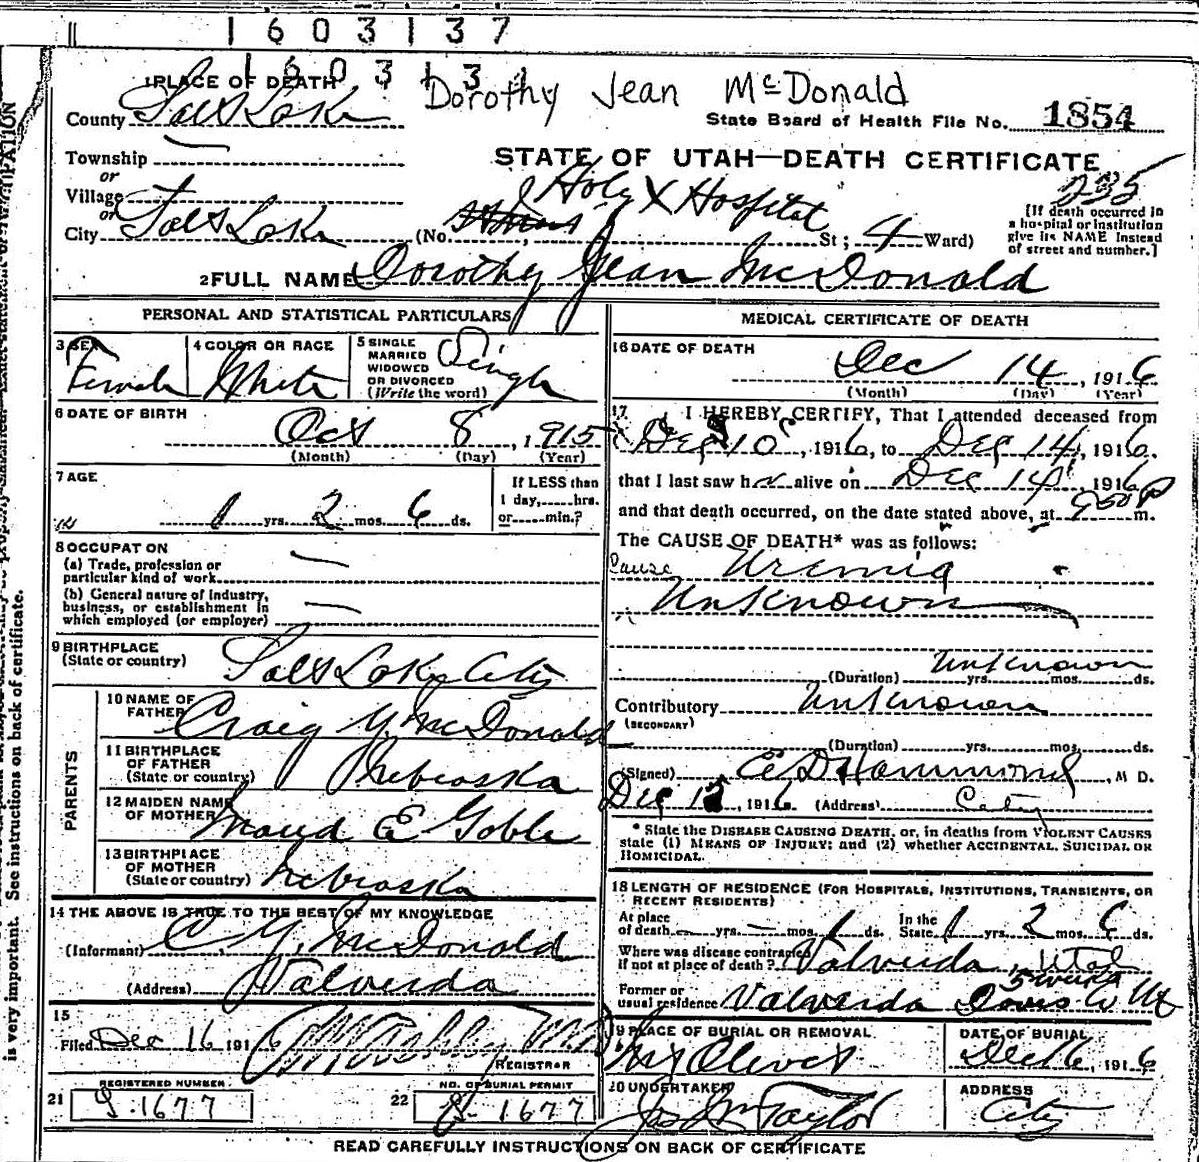 1603137
160313
1 PLACE OF DEATH Dorothy Jean McDonald
County Salt Lake State Board of Health File No. 1854
Township —
or
STATE OF UTAH—DEATH CERTIFICATE
235
Village
or
Holy X Hospital
City Salt Lake (No. St; 4 Ward)
[If death occurred in
a hospital or institution
give its NAME instead
of street and number.]
2 FULL NAME Dorothy Jean McDonald
PERSONAL AND STATISTICAL PARTICULARS
3 SEX
Female
4 COLOR OR RACE
White
5 SINGLE
MARRIED
WIDOWED
OR DIVORCED
(Write the word)
Single
6 DATE OF BIRTH
Oct 8, 1915
(Month) (Day) (Year)
7 AGE
1 yrs. 2 mos. 6 ds.
If LESS than
1 day,......hrs.
or......min.?
8 OCCUPATION
(a) Trade, profession or
particular kind of work —
(b) General nature of industry,
business, or establishment in
which employed (or employer) —
9 BIRTHPLACE
(State or country) Salt Lake City
PARENTS
10 NAME OF
FATHER Craig Y. McDonald
11 BIRTHPLACE
OF FATHER
(State or country) Nebraska
12 MAIDEN NAME
OF MOTHER Maud E Goble
13 BIRTHPLACE
OF MOTHER
(State or country) Nebraska
14 THE ABOVE IS TRUE TO THE BEST OF MY KNOWLEDGE
(Informant) C Y. McDonald
(Address) Valverda
15
Filed Dec 16 1916
REGISTRAR
REGISTERED NUMBER
21 1677
NO. OF BURIAL PERMIT
22 1677
MEDICAL CERTIFICATE OF DEATH
16 DATE OF DEATH
Dec 14, 1916
(Month) (Day) (Year)
17 I HEREBY CERTIFY, That I attended deceased from
Dec 10, 1916, to Dec 14, 1916.
that I last saw her alive on Dec 14, 1916
and that death occurred, on the date stated above, at 950P m.
The CAUSE OF DEATH* was as follows:
Cause Uremia
Unknown
Unknown
(Duration) yrs. mos. ds.
Contributory Unknown
(SECONDARY)
(Duration) yrs. mos. ds.
(Signed) E D Hammond, M D.
Dec 15, 1916. (Address) City
* State the DISEASE CAUSING DEATH, or, in deaths from VIOLENT CAUSES
state (1) MEANS OF INJURY; and (2), whether ACCIDENTAL, SUICIDAL OR
HOMICIDAL.
18 LENGTH OF RESIDENCE (FOR HOSPITALS, INSTITUTIONS, TRANSIENTS, OR
RECENT RESIDENTS)
At place
of death — yrs. — mos. 1 ds. In the
State 1 yrs. 2 mos. 6 ds.
Where was disease contracted
if not at place of death? Valverda, Utah
5 weeks
Former or
usual residence Valverda Davis Co Ut
19 PLACE OF BURIAL OR REMOVAL
Mt Olivet
DATE OF BURIAL
Dec 16, 1916
20 UNDERTAKER
Jos Wm Taylor
ADDRESS
City
READ CAREFULLY INSTRUCTIONS ON BACK OF CERTIFICATE
is very important. See instructions on back of certificate.